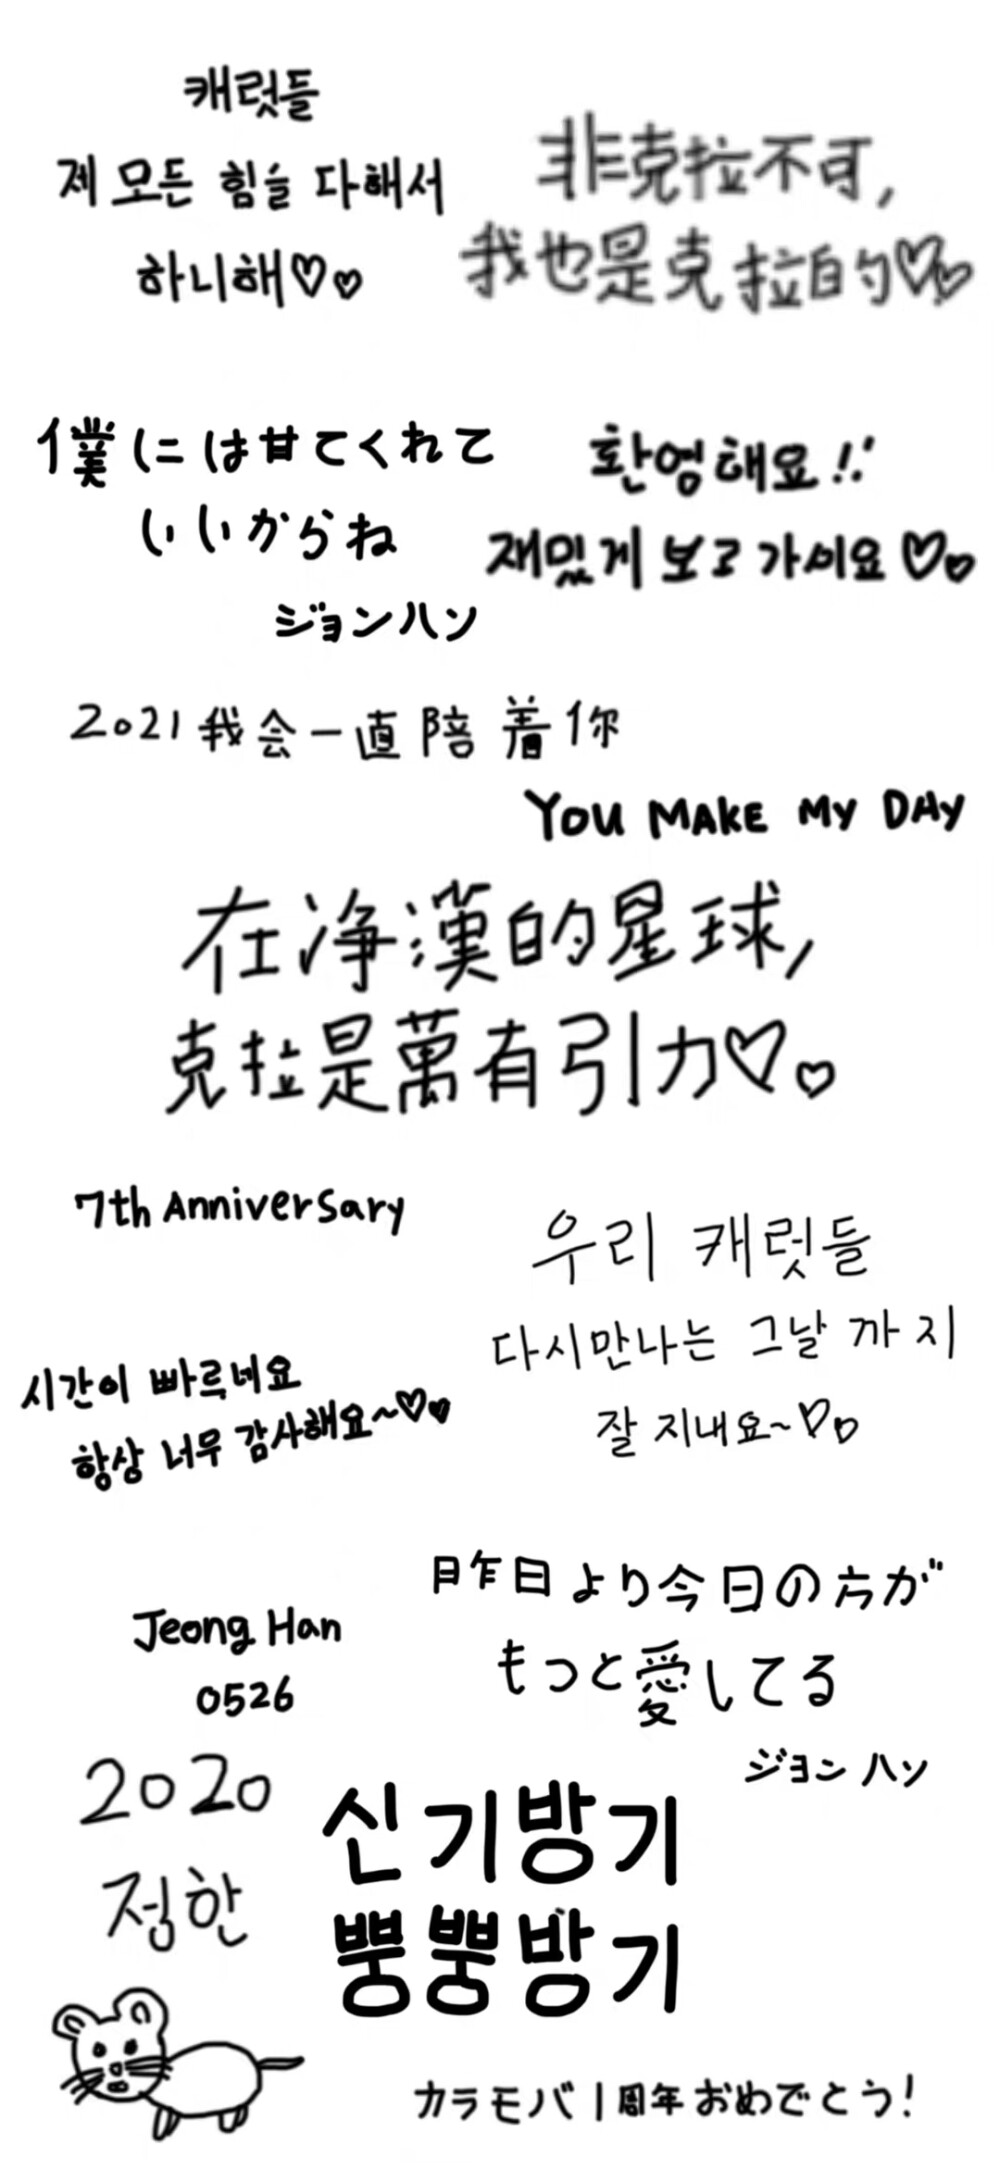 캐럿들
제 모든 힘을 다해서
하니해♡♡
非克拉不可,
我也是克拉的♡♡
僕には甘てくれて
いいからね
ジョンハン
환영해요!!
재밌게 보고 가세요♡♡
2021 我会一直陪着你
YOU MAKE MY DAY
在净漢的星球,
克拉是萬有引力♡♡
7th Anniversary
우리 캐럿들
다시만나는 그날까지
잘 지내요~♡♡
시간이 빠르네요
항상 너무 감사해요~♡♡
昨日より今日の方が
もっと愛してる
ジョンハン
Jeong Han
0526
2020
정한
신기방기
뿡뿡방기
カラモバ1周年おめでとう!